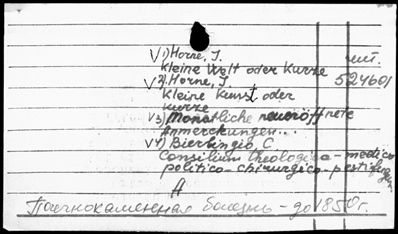 V1) Horne, J.
Kleine Welt oder Kurze
V2) Horne, J.
Kleine Kunst oder
Kurze
V3) Monatliche neueröffnete
Anmerckungen...
V4) Bierlingio, C.
Consilium theologico-medico
politico-chirurgico-pestifugum
шт.
524601
A
болезнь - до 1850 г.